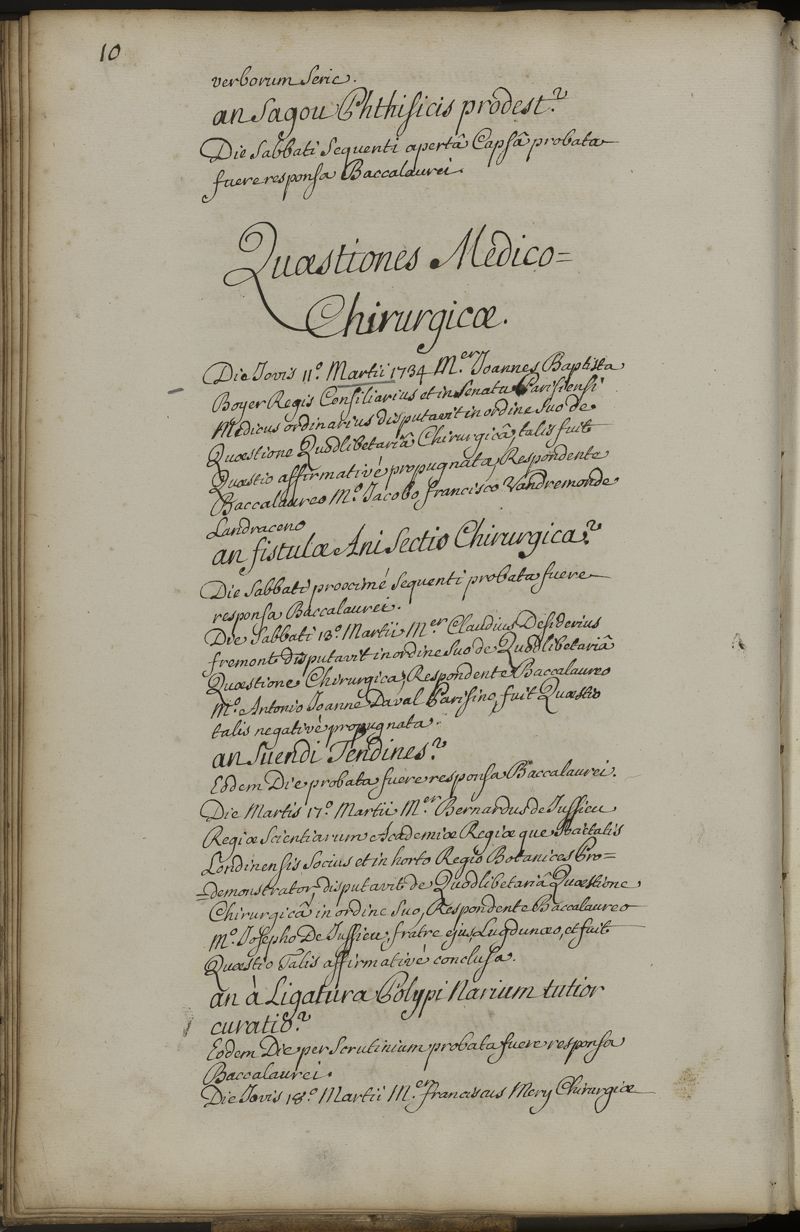 10
verborum serie.
an Sagou Phthisicis prodest?
Die Sabbati Sequenti apertâ Capsâ probata
fuere responsa Baccalaurei.
Quæstiones Medico=
Chirurgicæ.
Die Jovis 11.° Martii 1734 M.er Joannes Baptista
Boyer Regis Consiliarius et in Senatu Parisiensi
Medicus ordinarius disputavit in ordine Suo de
Quæstione Quodlibetariâ Chirurgicâ, talis fuit
Quæstio affirmativé propugnata, Respondente
Baccalaureo M.° Jacobo francisco Vandremonde
Landraceno
an fistulæ Ani Sectio Chirurgica?
Die Sabbati proximé Sequenti probata fuere
responsa Baccalaurei.
Die Sabbati 13.° Martii M.er Claudius Desiderius
fremont disputavit in ordine Suo de Quodlibetariâ
Quæstione Chirurgica, Respondente Baccalaureo
M.° Antonio Joanne Daval Parisino, fuit Quæstio
talis negativé propugnata.
an Suendi Tendines?
Eodem Die probata fuere responsa Baccalaurei.
Die Martis 17.° Martii M.er Bernardus de Jussieu
Regiæ Scientiarum Academiæ Regiæ que
Londinensis Socius et in horto Regio Botanices Pro=
=demonstrator, disputavit de Quodlibetariâ Quæstione
Chirurgicâ in ordine Suo, Respondente Baccalaureo
M.° Josepho De Jussieu, fratre ejus, Lugdunæo, et fuit
Quæstio Talis affirmativé conclusa.
an à Ligatura Polypi Narium tutior
curatio?
Eodem Die per Scrutinium probata fuere responsa
Baccalaurei.
Die Jovis 18.° Martii M.er franciscus Mery Chirurgiæ